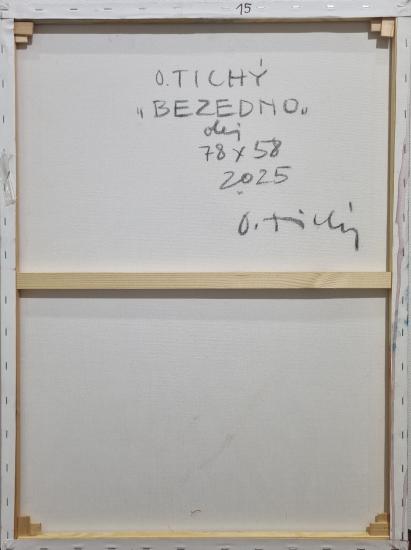 15
O. TICHÝ
„BEZEDNO"
olej
78 x 58
2025
O. Tichý